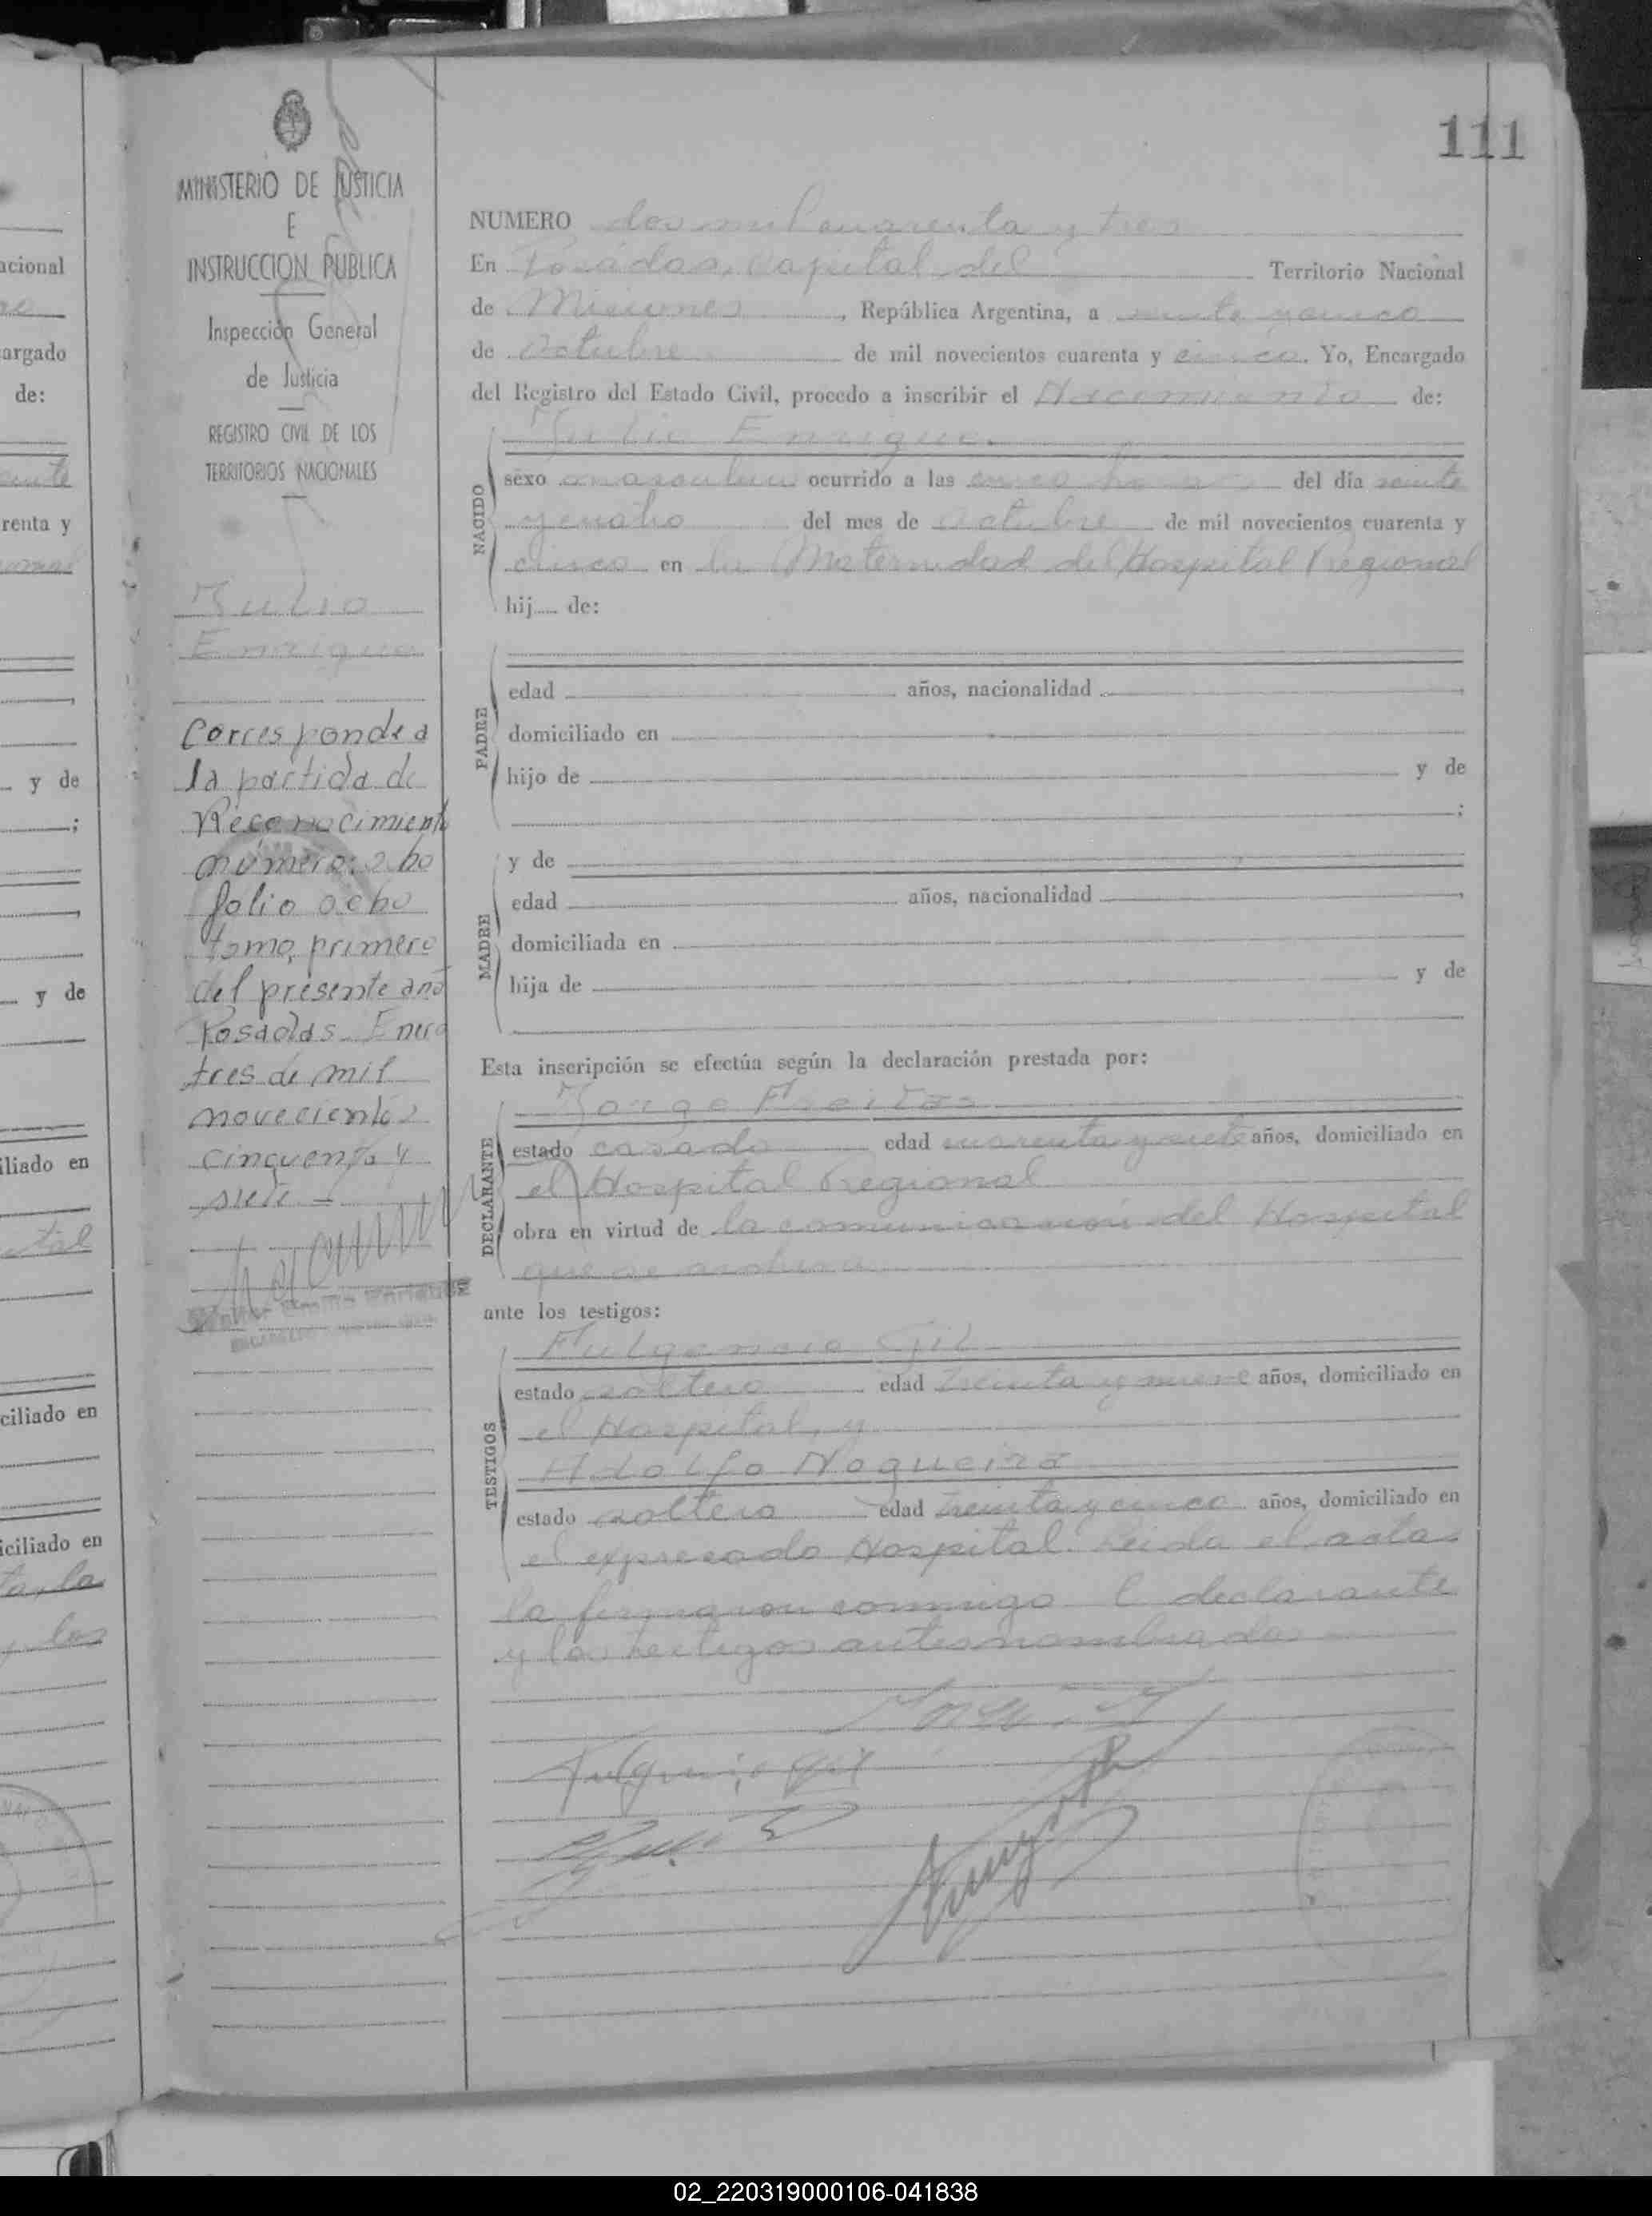 111
MINISTERIO DE JUSTICIA
E
INSTRUCCION PUBLICA
Inspección General
de Justicia
REGISTRO CIVIL DE LOS
TERRITORIOS NACIONALES
Julio
Enrique
Corresponde a
la partida de
Reconocimiento
número: ocho
folio ocho
tomo, primero
del presente año
Posadas. Enero
tres de mil
novecientos
cincuenta y
siete -
NUMERO dos mil cuarenta y tres
En Posadas, capital del Territorio Nacional
de Misiones, República Argentina, a veinte y cinco
de Octubre de mil novecientos cuarenta y cinco. Yo, Encargado
del Registro del Estado Civil, procedo a inscribir el Nacimiento de:
Julio Enrique.
NACIDO
sexo masculino ocurrido a las cinco horas del día veinte
y cuatro del mes de octubre de mil novecientos cuarenta y
cinco en la Maternidad del Hospital Regional
hij de:
PADRE
edad años, nacionalidad
domiciliado en
hijo de y de
;
MADRE
y de
edad años, nacionalidad
domiciliada en
hija de y de
Esta inscripción se efectúa según la declaración prestada por:
DECLARANTE
Jorge Freitas
estado casado edad cuarenta y siete años, domiciliado en
el Hospital Regional
obra en virtud de la comunicación del Hospital
que se archiva
ante los testigos:
TESTIGOS
Fulgencio Gil
estado soltero edad treinta y nueve años, domiciliado en
el Hospital, y
Adolfo Nogueira
estado soltero edad treinta y cinco años, domiciliado en
el expresado Hospital. Leida el acta
la firmaron conmigo el declarante
y los testigos antes nombrados
Fulgencio Gil
acional
argado
de:
renta y
y de
;
y de
iliado en
ciliado en
iciliado en
ta, la
los
02_220319000106-041838